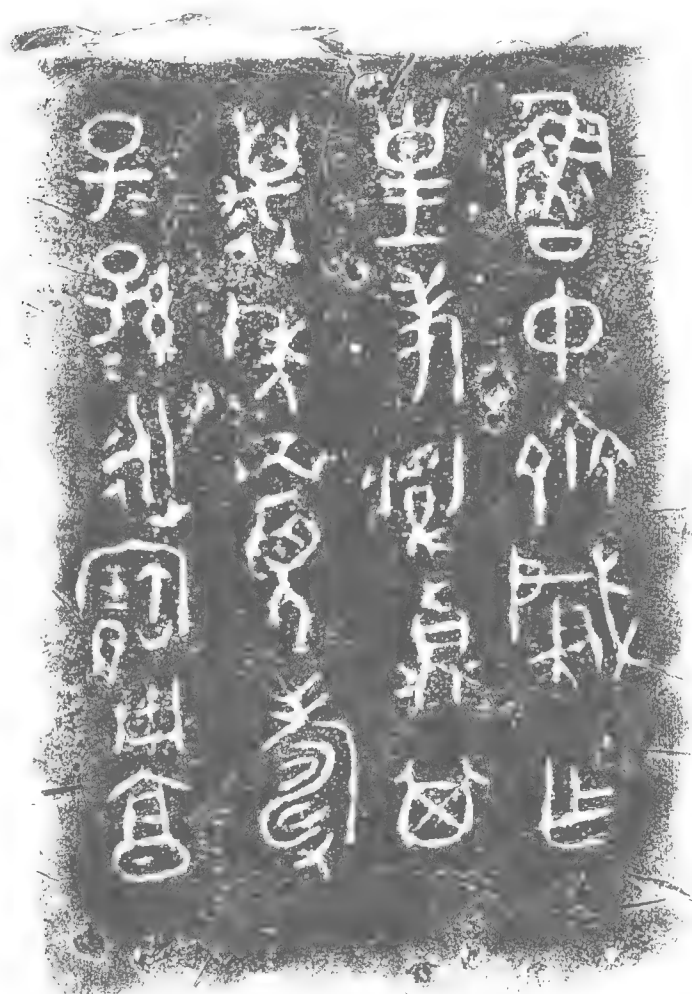 魯中齊肇乍
皇考䵼鼎其
萬年眉壽
子=孫=永寶用享